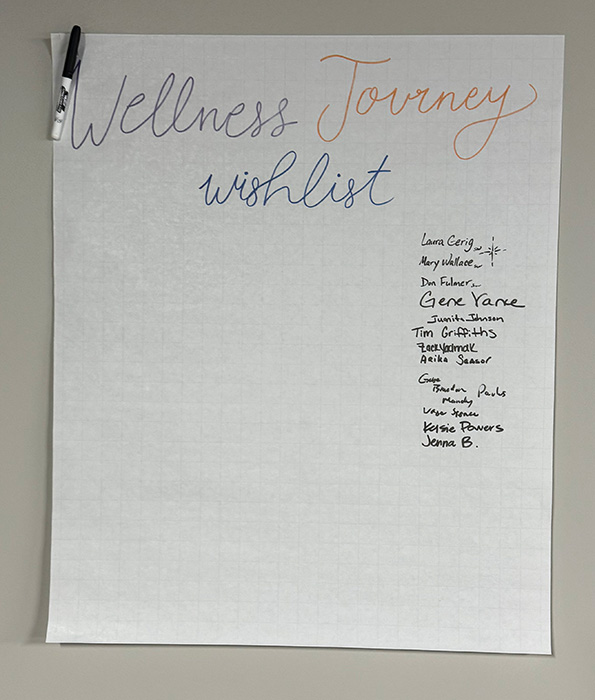 Wellness Journey
wishlist
Laura Gerig
Mary Wallace
Don Fulmer
Gene Vance
Juanita Johnson
Tim Griffiths
Zack
Arika
Gabe
Brandon Pauls
Mandy
Kelsie Powers
Jenna B.